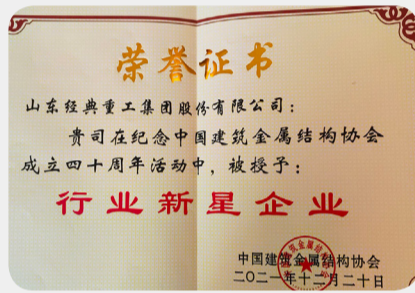 荣誉证书
山东经典重工集团股份有限公司：
贵司在纪念中国建筑金属结构协会
成立四十周年活动中，被授予：
行业新星企业
中国建筑金属结构协会
二〇二一年十二月二十日